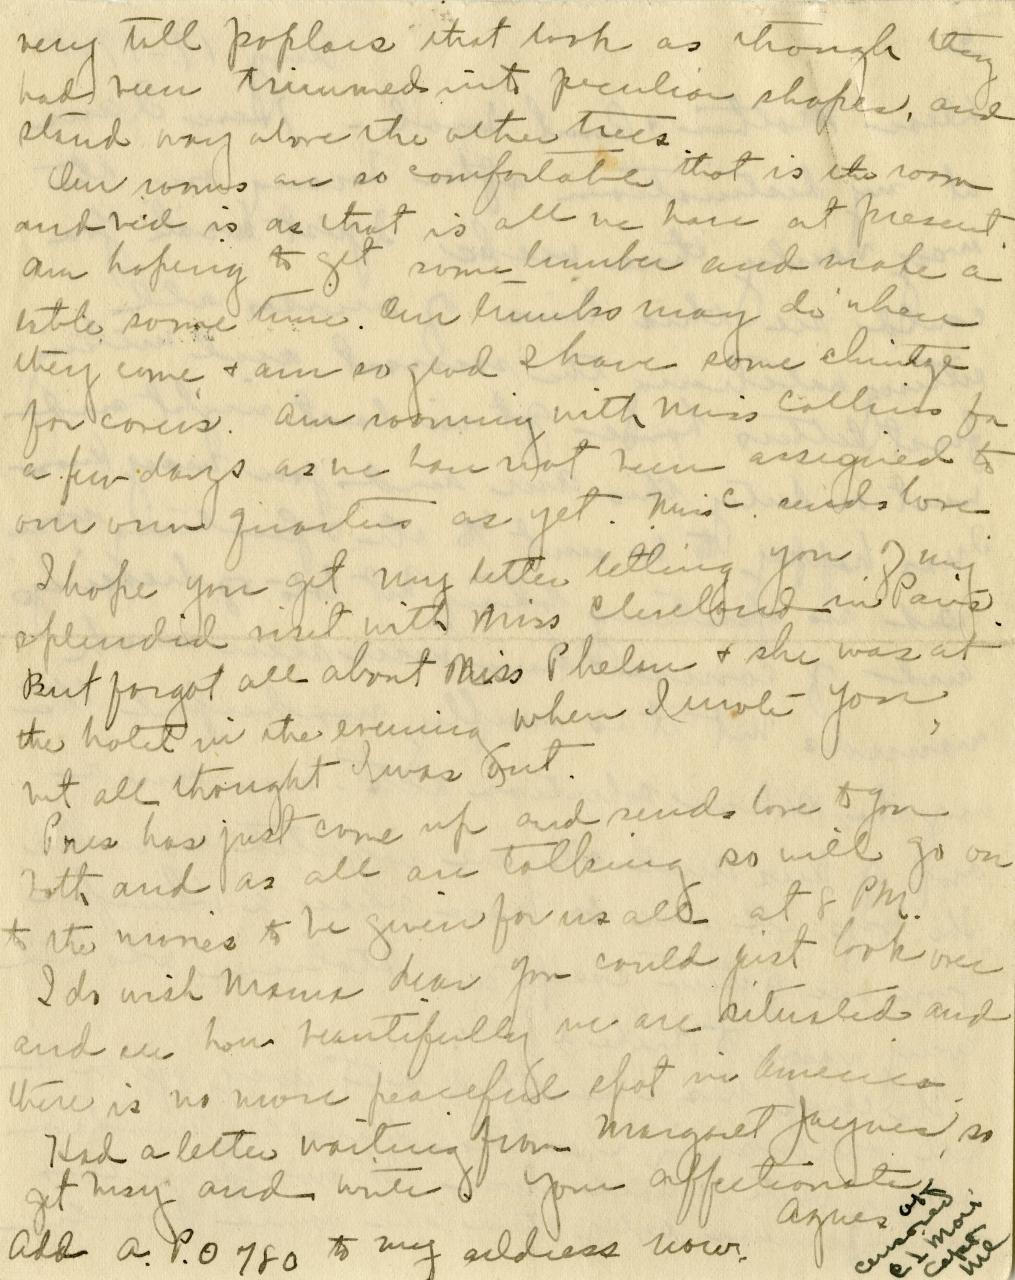 very tall poplars that look as though they
had been trimmed into peculiar shapes, and
stand way above the other trees.
Our rooms are so comfortable that is the room
and bed is as that is all we have at present.
Am hoping to get some lumber and make a
table some time. Our trunks may do when
they come, + am so glad I have some chintze
for covers. Am rooming with Miss Collins for
a few days as we have not been assigned to
our own quarters as yet. Miss C. sends love
I hope you get my letter telling you of my
splendid visit with Miss Cleveland in Paris.
But forgot all about Miss Phelan + she was at
the hotel in the evening when I wrote you,
but all thought I was out.
has just come up and sends love to you
both and as all are talking so will go on
to the movies to be given for us all at 8 PM.
I do wish Mama dear you could just look over
and see how beautifully we are situated and
there is no more peaceful spot in America.
Had a letter waiting from Margaret Jaynes, so
get busy and write. Your affectionate,
Agnes
Add A.P.O 780 to my address now.
censored
Capt
MC